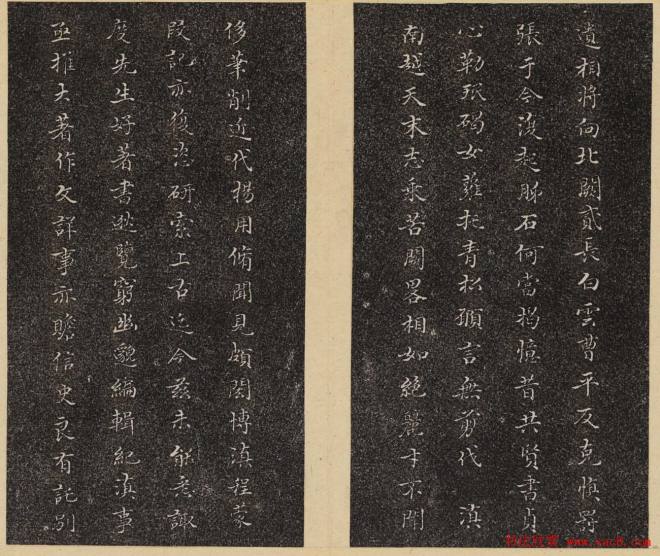 遺相將向北闕貳長白雲曹平反克慎罰
張于今復起肺石何當揭憶昔共賢書貞
心勒珉碣女蘿托青松願言無剪代 滇
南越天末志乘苦闊略相如絕麗才不聞
侈筆削近代楊用脩聞見頗閎博滇程蒙
段記亦復恣研索上召迄今茲未能悉諏
度先生好著書遊覽窮幽邈編輯紀滇事
亟推大著作文詳事亦贍信史良有託別